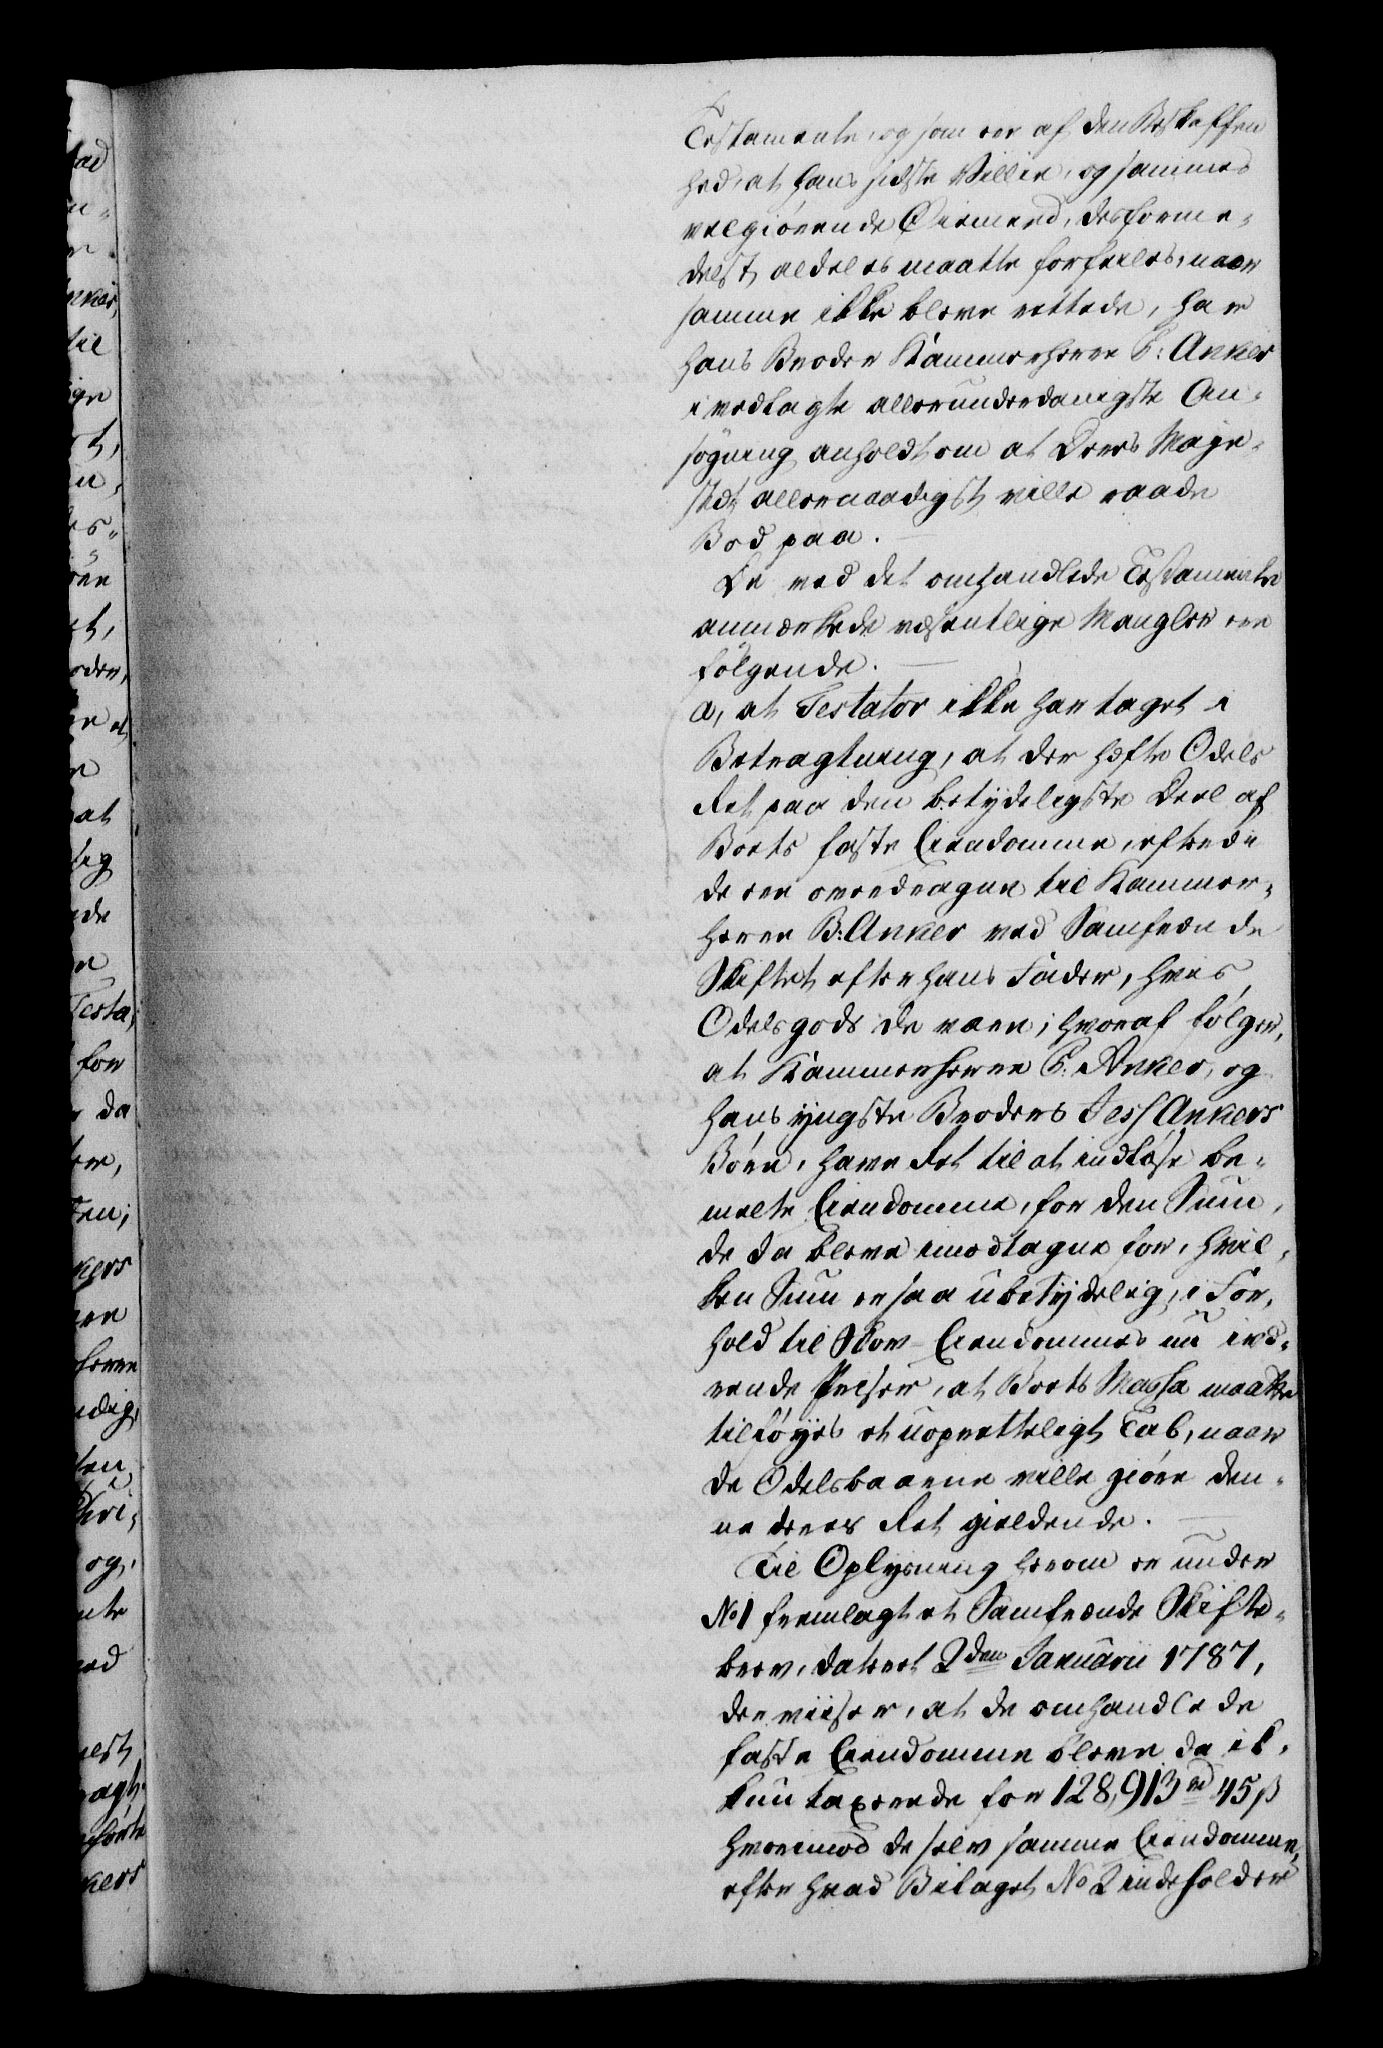 Testamente, og som ere af den Beskaffen
hed, at hans sidste Villie, og sammes
velgiörende Øiemeed, desforme-
delst aldeles maatte forfeiles, naar
samme ikke bleve rettede, har
hans Broder Kammerherre P: Anker
i vedlagte allerunderdanigste An-
søgning anholdt om at Deres Maje-
stæt allernaadigst ville raade
Bod paa.
De ved det omhandlede Testamente
anmærkede væsentlige Mangler ere
følgende.
a, at Testator ikke har taget i
Betragtning, at der hæfte Odels
Ret paa den betydeligste Deel af
Boets faste Eiendomme, efterdi
de ere overdragne til Kammer-
herre B: Anker ved Samfrænde
Skiftet efter hans Fader, hvis
Odelsgods de vare; hvoraf følger,
at Kammerherre P. Anker, og
hans yngste Broders Jess Ankers
Börn, have Ret til at indløse be-
melte Eiendomme, for den Sum,
de da bleve imodtagne for, hvil-
ken Sum er saa ubetydelig, i For-
hold til Skov-Eiendommes nu væ-
rende Priser, at Boets Massa maatte
tilföyes et uoprætteligt Tab, naar
de Odelsbaarne ville giöre den-
ne deres Ret gieldende.
Til Oplysning herom er under
No 1 fremlagt et Samfrænde Skifte-
brev, dateret 2den Januarii 1787,
der viiser, at de omhandlede
faste Eiendomme bleve da ik-
kun taxerede for 128,913 rd 45 ß
hvorimod de selv samme Eiendomme,
efter hvad Bilaget No 2 indeholder